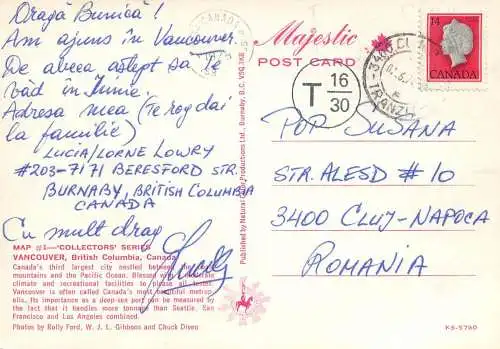 Dragă Bunică!
Am ajuns în Vancouver.
De abeea aștept să te
văd în Iunie.
Adresa mea (Te rog dai
la familie)
LUCIA/LORNE LOWRY
#203-7171 BERESFORD STR.
BURNABY, BRITISH COLUMBIA
CANADA
Cu mult drag
MAP #1—"COLLECTORS' SERIES"
VANCOUVER, British Columbia, Canada
Canada's third largest city nestled between the
mountains and the Pacific Ocean. Blessed with a moderate
climate and recreational facilities to please all tastes
Vancouver is often called Canada's most beautiful metrop-
olis. Its importance as a deep-sea port can be measured by
the fact that it handles more tonnage than Seattle, San
Francisco and Los Angeles combined.
Photos by Rolly Ford, W. J. L. Gibbons and Chuck Diven
Published by Natural Color Productions Ltd., Burnaby, B.C. V5G 3K8
Majestic
POST CARD
CANADA
T 16
30
14
CANADA
3400 CLUJ
TRANZIT
POP SUSANA
STR. ALESD #10
3400 CLUJ-NAPOCA
ROMANIA
KS-5760